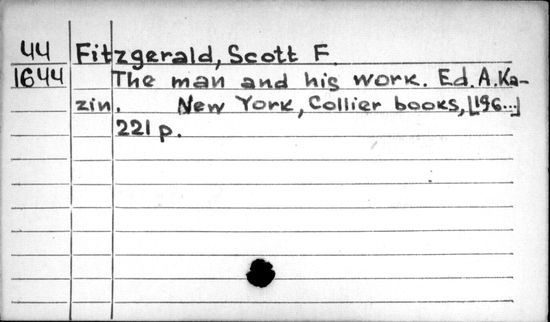 44 Fitzgerald, Scott F.
1644 The man and his work. Ed. A. Ka-
zin. New York, Collier books, [196...]
221 p.